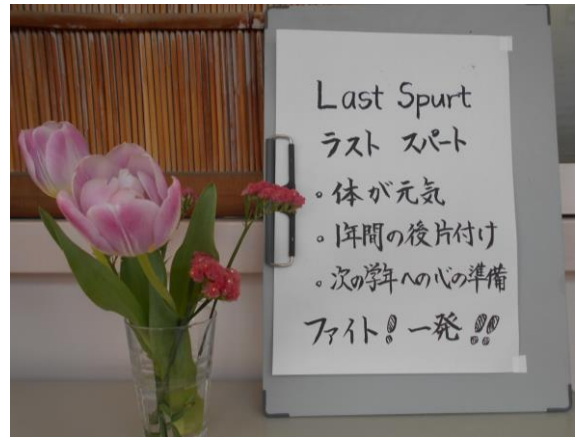 Last Spurt
ラスト スパート
。体が元気
。1年間の後片付け
。次の学年への心の準備
ファイト! 一発!!